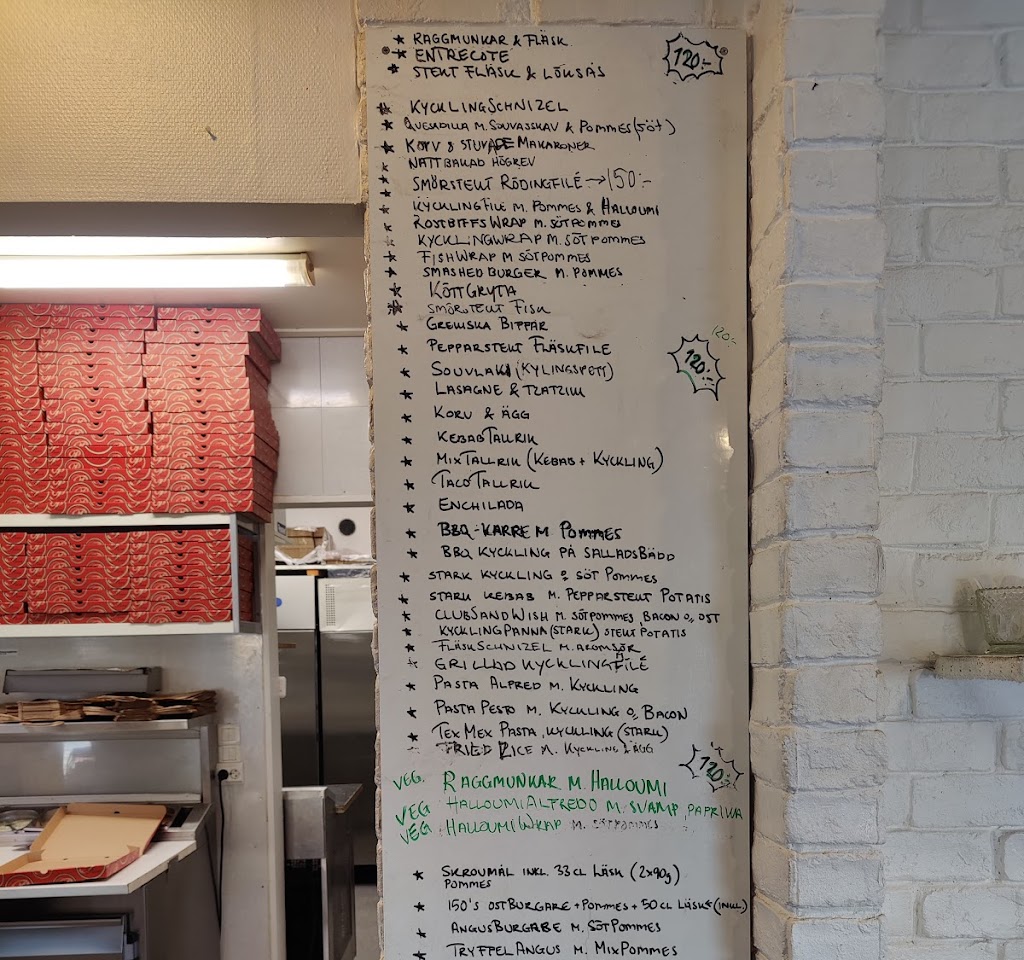 * RAGGMUNKAR & FLÄSK 120:-
* ENTRECOTE
* STEKT FLÄSK & LÖKSÅS
* KYCKLINGSCHNIZEL
* QUESADILLA M. SOUVASSKAV & POMMES (SÖT)
* KORV & STUVADE MAKARONER
* NATTBAKAD HÖGREV
* SMÖRSTEKT RÖDINGFILÉ → 150:-
* KYCKLINGFILE M. POMMES & HALLOUMI
* ROSTBIFFSWRAP M. SÖTPOMMES
* KYCKLINGWRAP M. SÖTPOMMES
* FISHWRAP M SÖTPOMMES
* SMASHED BURGER M. POMMES
* KÖTTGRYTA
* SMÖRSTEKT FISK
* GREKISKA BIFFAR 120:-
* PEPPARSTEKT FLÄSKFILE 120:-
* SOUVLAKI (KYLINGSPETT)
* LASAGNE & TZATZIKI
* KORV & ÄGG
* KEBABTALLRIK
* MIXTALLRIK (KEBAB + KYCKLING)
* TACOTALLRIK
* ENCHILADA
* BBQ-KARRE M POMMES
* BBQ KYCKLING PÅ SALLADSBÄDD
* STARK KYCKLING O SÖT POMMES
* STARK KEBAB M. PEPPARSTEKT POTATIS
* CLUBSANDWISH M. SÖTPOMMES, BACON O OST
* KYCKLINGPANNA (STARK) STEKT POTATIS
* FLÄSKSCHNIZEL M. AROMSÖR
* GRILLAD KYCKLINGFILÉ
* PASTA ALFRED M. KYCKLING
* PASTA PESTO M. KYCKLING O BACON
* TEX MEX PASTA, KYCKLING (STARK)
* FRIED RICE M. KYCKLING & ÄGG 120:-
VEG. RAGGMUNKAR M. HALLOUMI
VEG HALLOUMI ALFREDO M. SVAMP, PAPRIKA
VEG. HALLOUMIWRAP M. SÖTPOMMES
* SKROVMÅL INKL. 33 CL LÄSK (2x90g)
POMMES
* 150'S OSTBURGARE + POMMES + 50 CL LÄSK (INKL)
* ANGUSBURGARE M. SÖTPOMMES
* TRYFFELANGUS M. MIXPOMMES